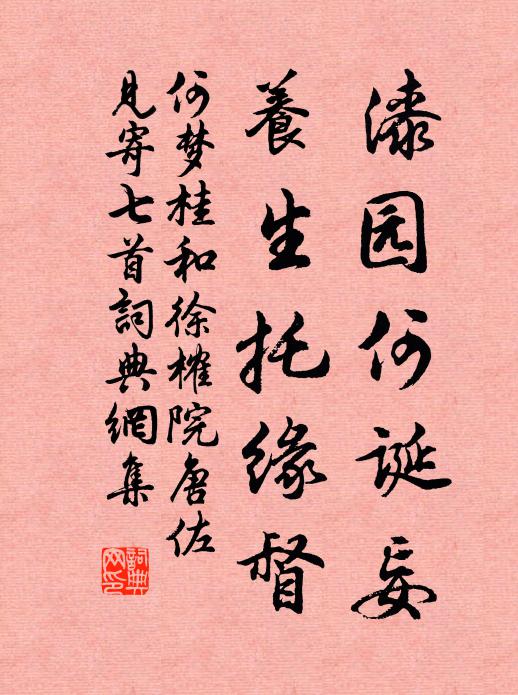 漆园何诞妄
養生托缘督
何梦桂和徐榷院唐佐
見寄七首詞典網集
詞典网印